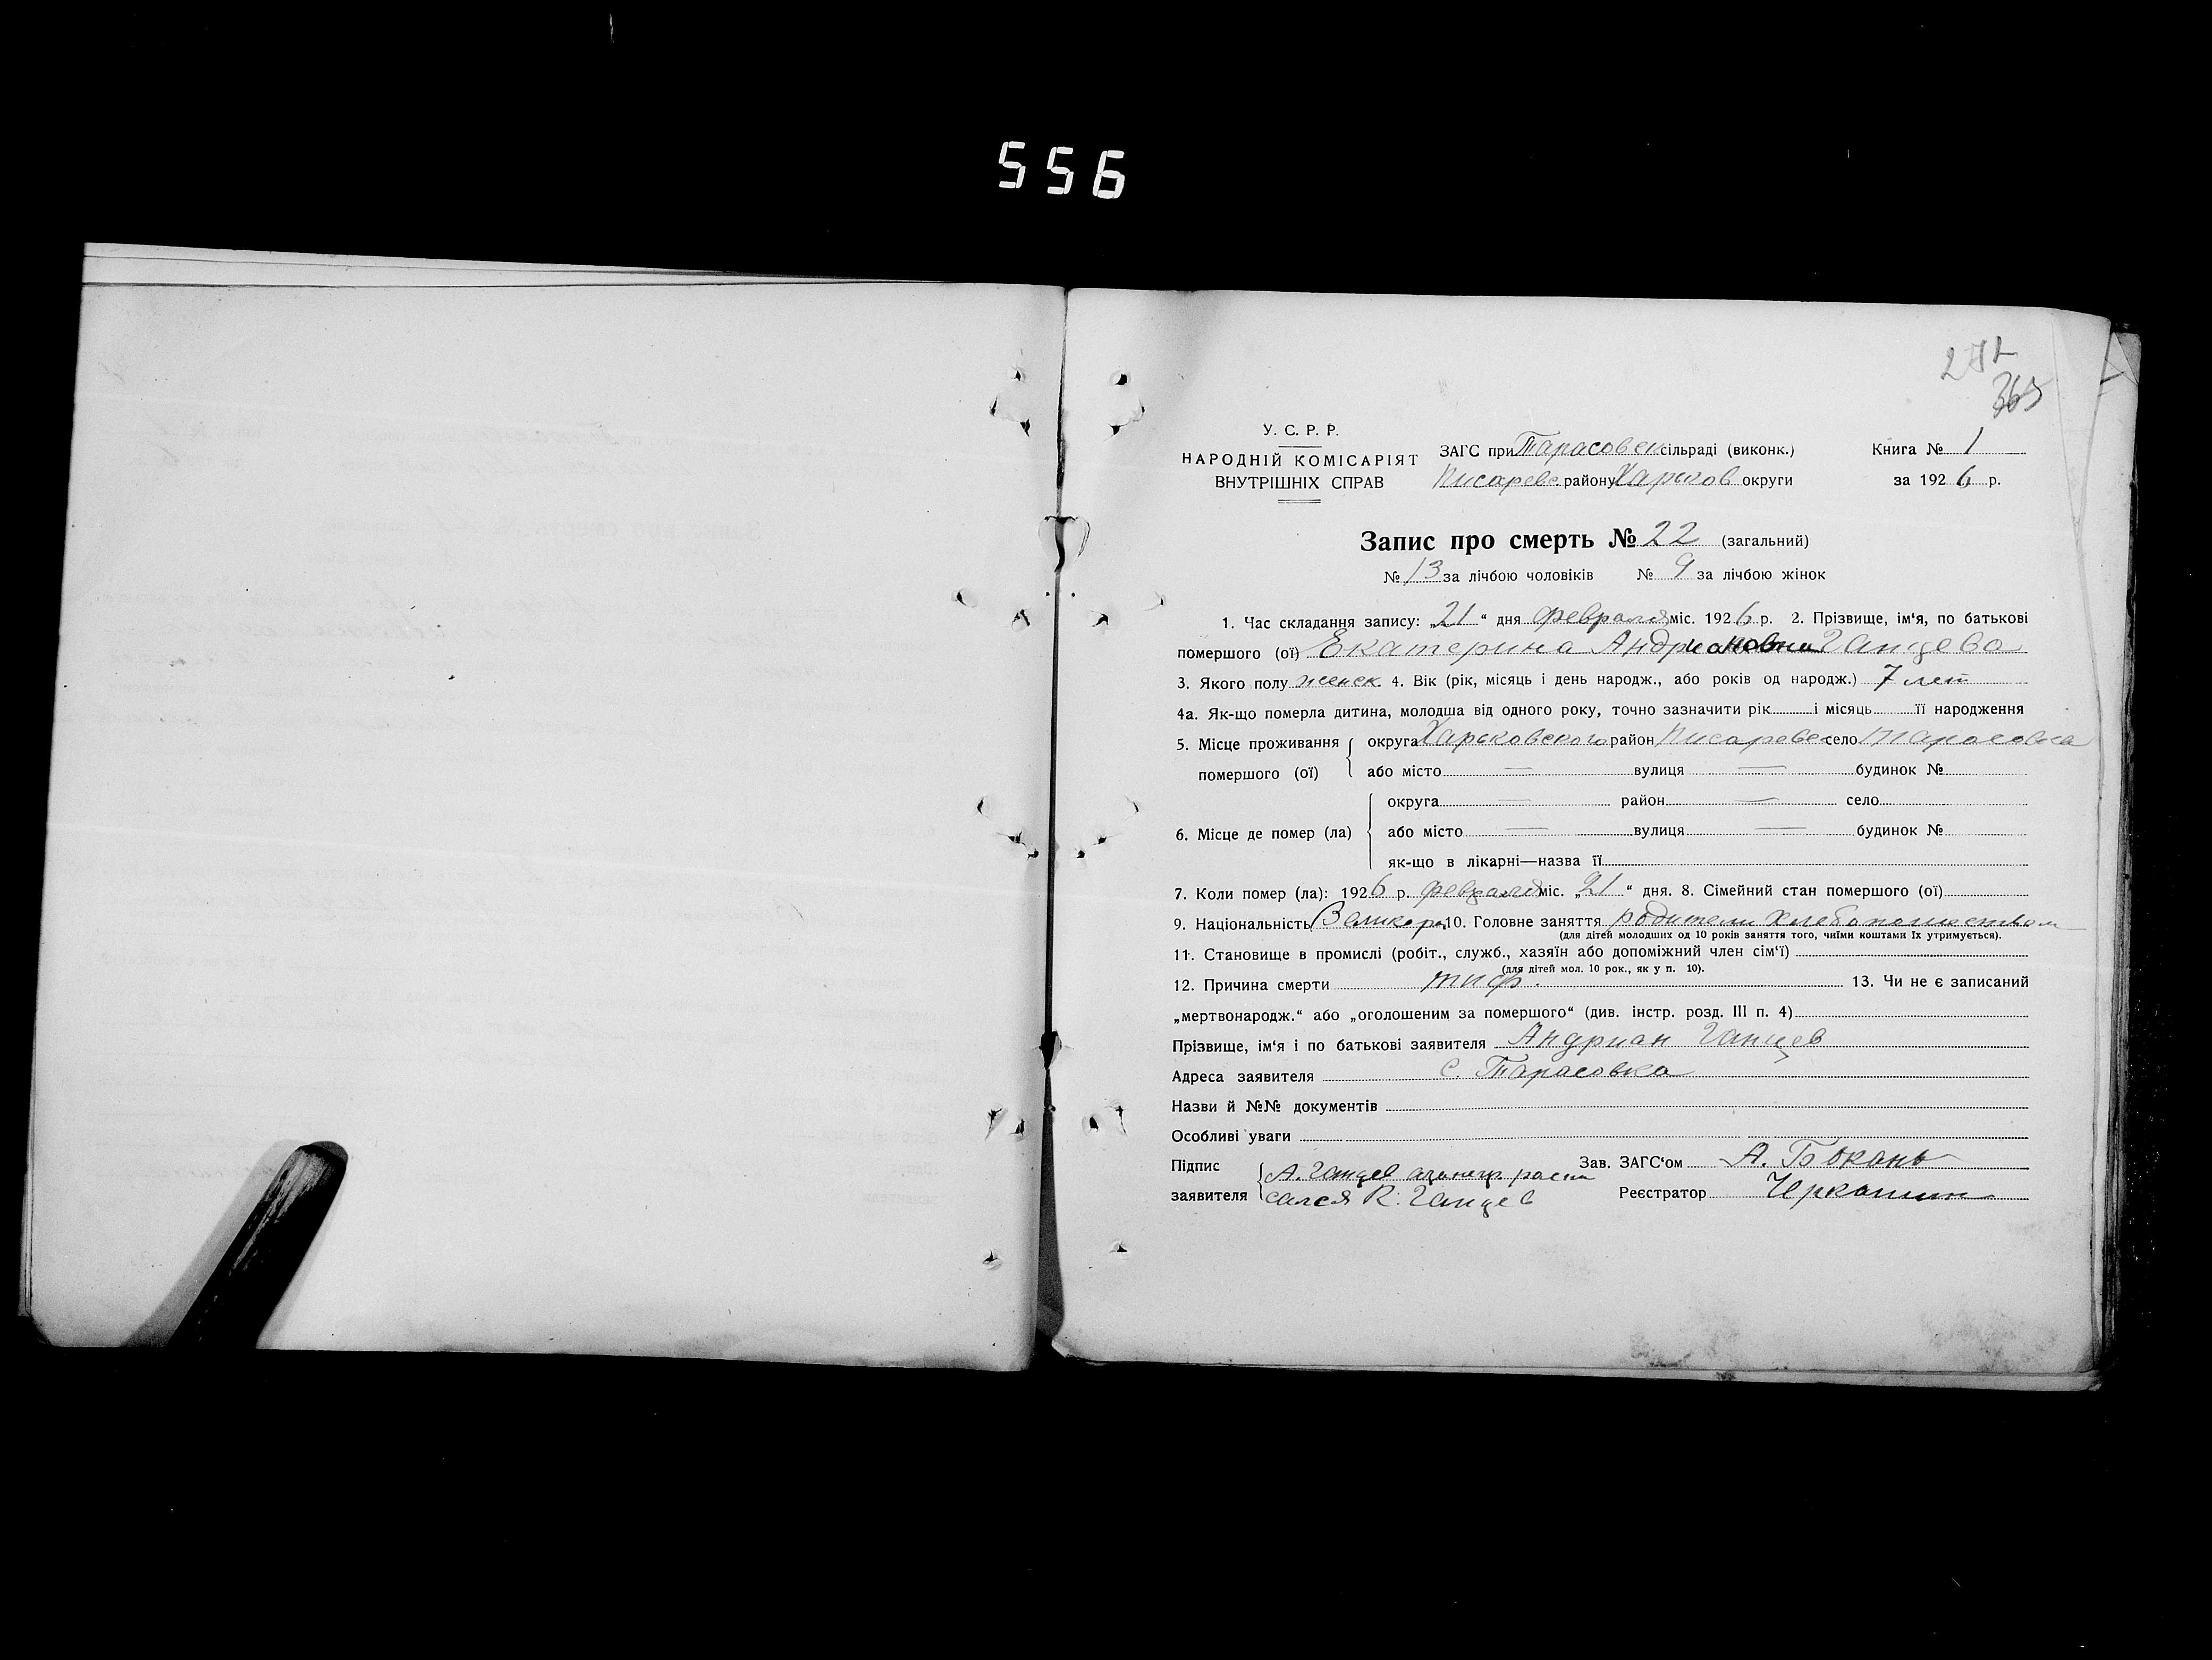 556
365
У. С. Р. Р.
НАРОДНІЙ КОМІСАРІЯТ
ВНУТРІШНІХ СПРАВ
ЗАГС при Тарасовск сільраді (виконк.)
Писарев району Харьков округи
Книга № 1
за 1926 р.
Запис про смерть № 22 (загальний)
№ 13 за лічбою чоловіків № 9 за лічбою жінок
1. Час складання запису: „21“ дня февраля міс. 1926 р. 2. Прізвище, ім‘я, по батькові
помершого (ої) Екатерина Андриановна Ганцева
3. Якого полу женск. 4. Вік (рік, місяць і день народж., або років од народж.) 7 лет
4а. Як-що померла дитина, молодша від одного року, точно зазначити рік і місяць її народження
5. Місце проживання помершого (ої) округа Харьковского район Писаревс село Тарасовка
або місто — вулиця — будинок №
6. Місце де помер (ла) округа — район — село
або місто — вулиця — будинок №
як-що в лікарні—назва її
7. Коли помер (ла): 1926 р. февраля міс. „21“ дня. 8. Сімейний стан помершого (ої)
9. Національність Великор 10. Головне заняття родители хлебопашеством
(для дітей молодших од 10 років заняття того, чиїми коштами їх утримується).
11. Становище в промислі (робіт., служб., хазяїн або допоміжний член сім‘ї)
(для дітей мол. 10 рок., як у п. 10).
12. Причина смерти тиф. 13. Чи не є записаний
„мертвонародж.“ або „оголошеним за помершого“ (див. інстр. розд. III п. 4)
Прізвище, ім‘я і по батькові заявителя Андриан Ганцев
Адреса заявителя с. Тарасовка
Назви й №№ документів
Особливі уваги
Підпис заявителя А. Ганцев
сался К. Ганцев
Зав. ЗАГС‘ом А. Бокань
Реєстратор Черкашин